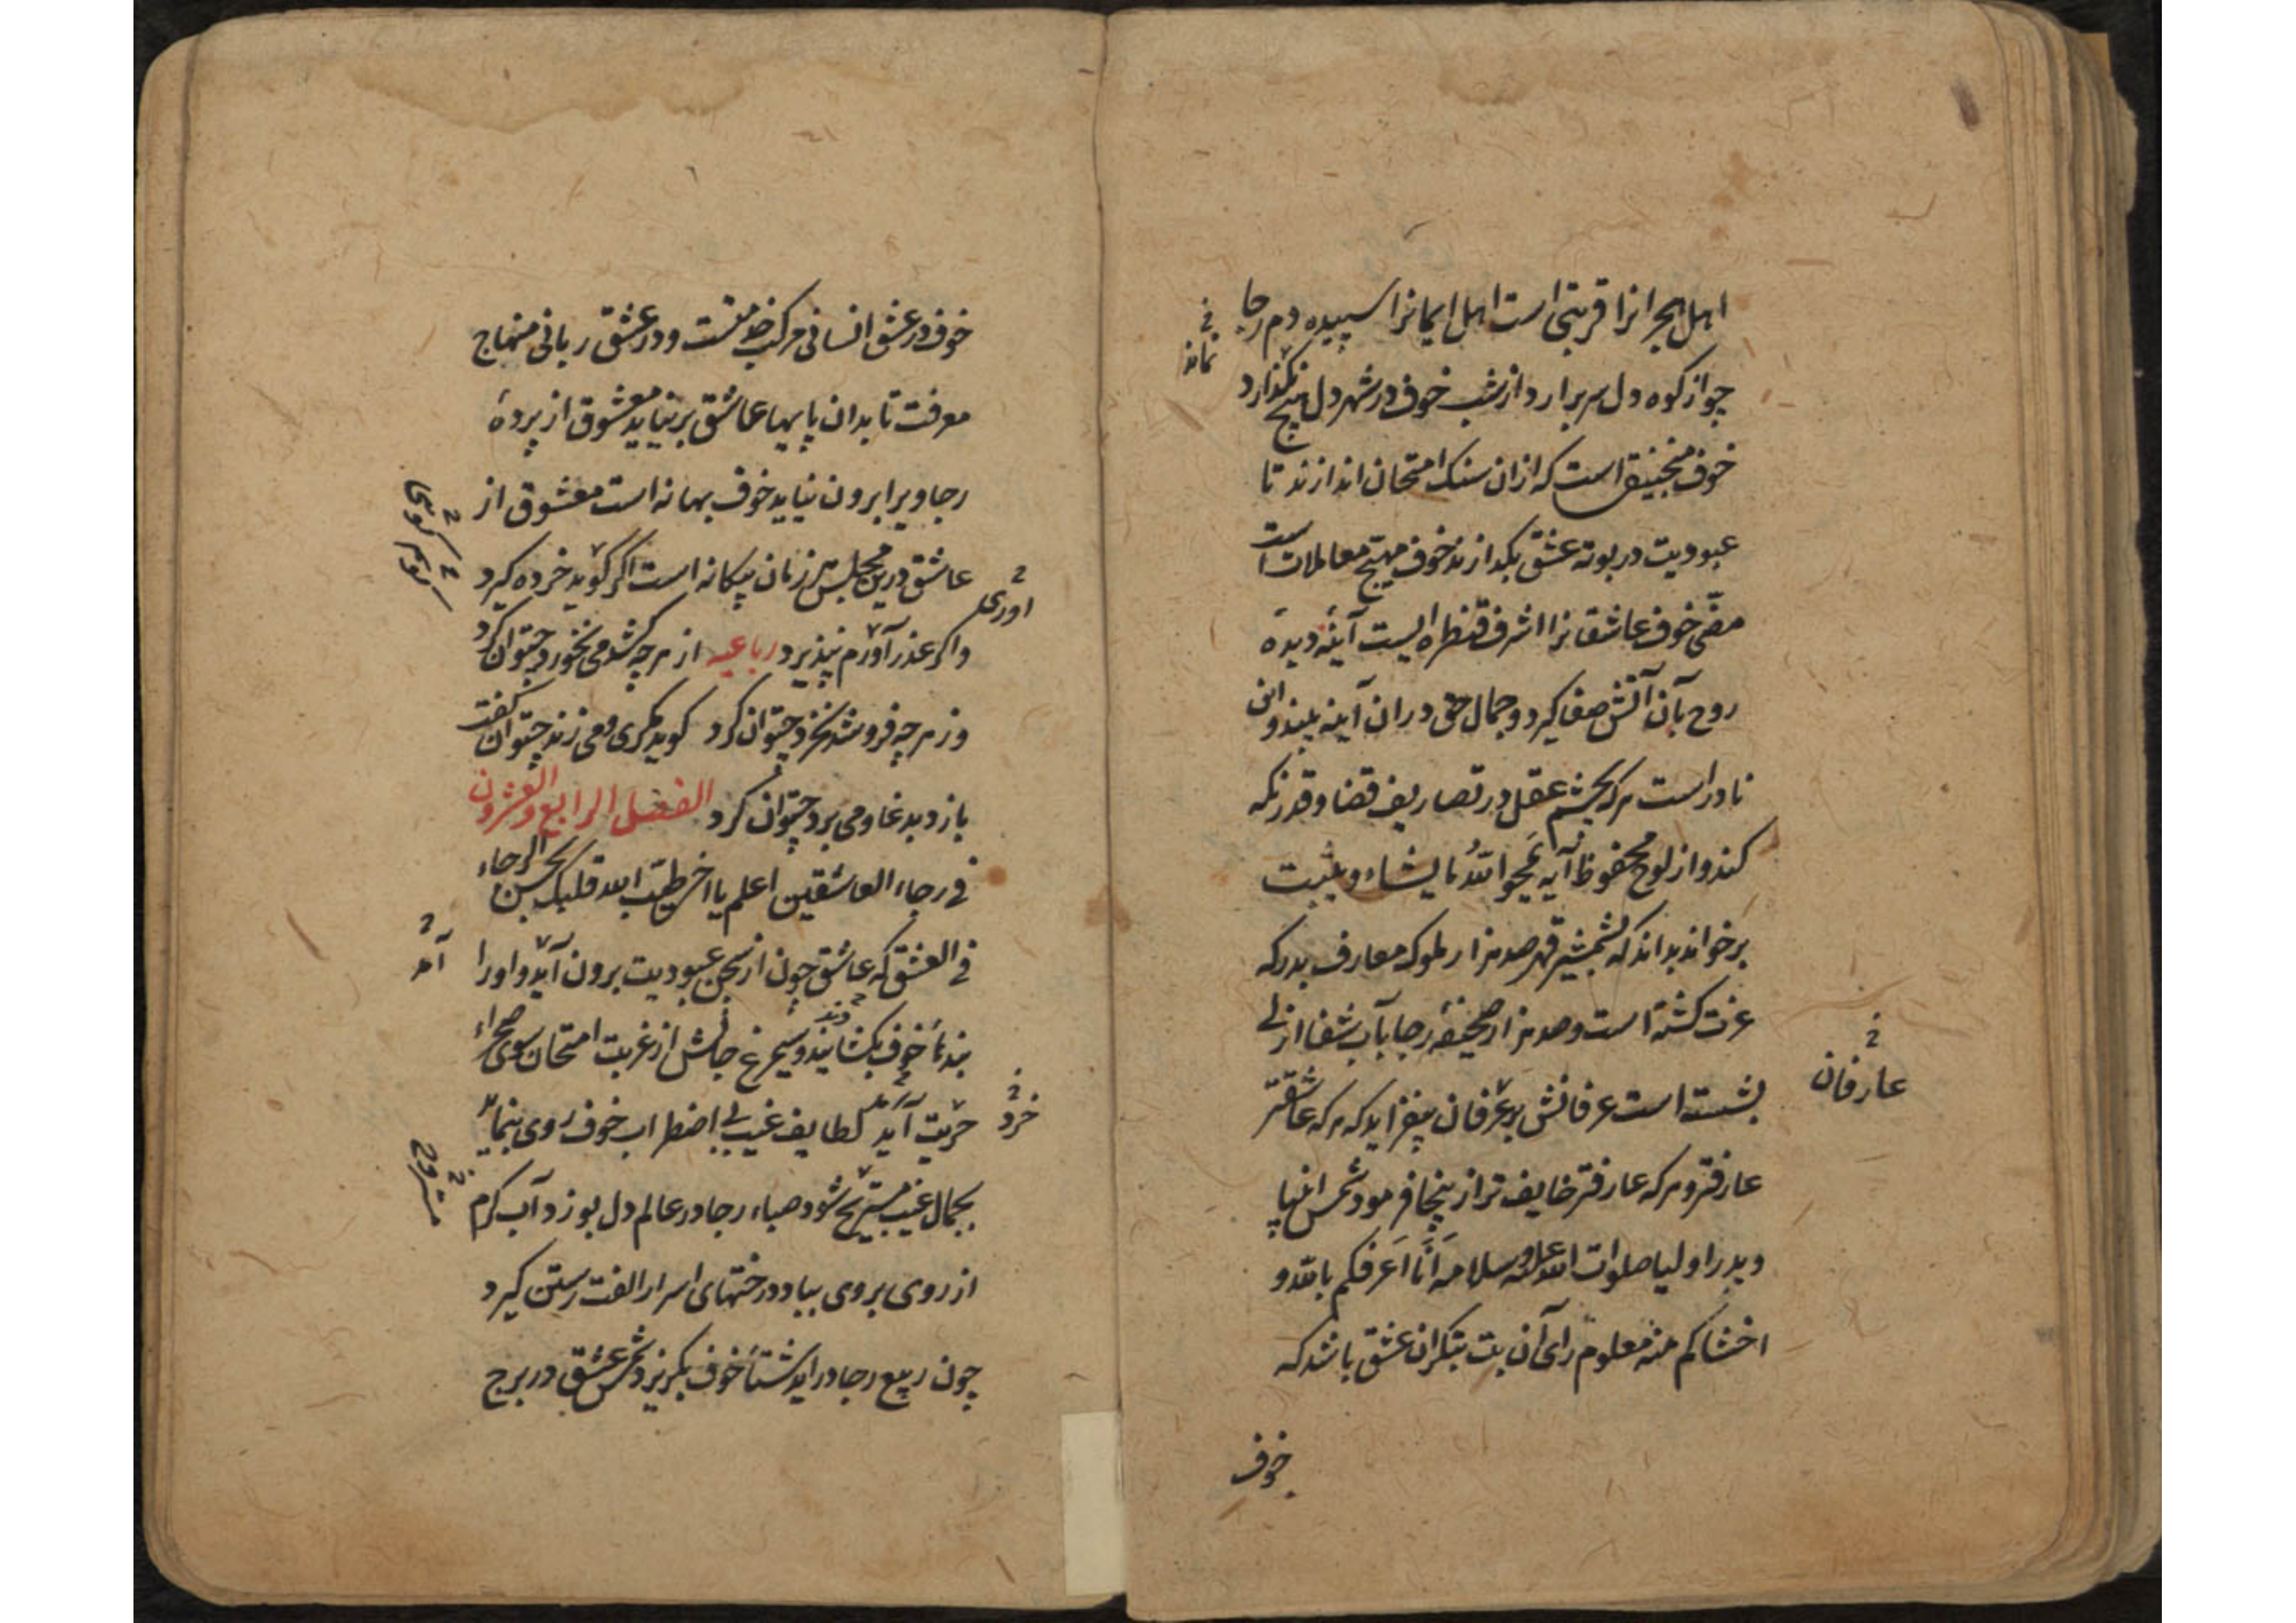 اهل هجرانرا قربتی است اهل ایمانرا سپیده دم رجا
چو از کوه دل سر برارد از شب خوف در شهر دل هیچ نگذارد
خوف منجنیق است که ازان سنک امتحان اندازند تا
عبودیت در بوته عشق بکدازند خوف مهیج معاملات است
خوف عاشقانرا اشرف قنطره ایست آینه دیده
روح بآن آتش صفا کیرد و جمال حق دران آینه بیند و این
نادر است هرکه بچشم عقل در تصاریف قضا و قدر نکه
کند و از لوح محفوظ آیه یمحوا الله ما یشاء و یثبت
برخواند بداند که بشمشیر قهر صد هزار ملوک معارف بدرکه
عزت کشته است و صد هزار صحیفه رجا بآب شفا ازلی
بشسته است عرفانش بر عرفان بیفزاید که هرکه عاشقتر
عارفتر و هرکه عارفتر خایف تر ازینجا فرمود شمس انبیا
و بدر اولیا صلوات الله علیه و سلامه انا اعرفکم بالله و
اخشاکم منه معلوم رای آن بت بتکران عشق باشد که
خوف
فی
نماند
عارفان
خوف در عشق انسانی مرکب خط مقتست و در عشق ربانی منهاج
معرفت تا بدان پایها عاشق برنیاید معشوق از پرده
رجا ویرا برون نیاید خوف بهانه است معشوق از
عاشق درین مجلس زنان بیکانه است اکر کوید خرده کیرد
و اکر عذر آورم نپذیرد رباعیه از هرچه کشد می نخورد چتوان کرد
وز هرچه فروشد نخرد چتوان کرد کوید مکری و می زند چتوان کفت
باز دبدغا و می برد چتوان کرد الفصل الرابع و العشرون
فی رجاء العاشقین اعلم یا اخی طیب الله قلبک بحسن الرجاء
فی العشق که عاشق چون از سجن عبودیت برون آید و اورا
بندهاء خوف بکشایند و سیمرغ جانش از غربت امتحان سوی صحراء
حریت آید لطایف غیب بی اضطراب خوف روی بنماید
بجمال غیب مستریح شود صباء رجا در عالم دل بوزد آب کرم
از روی بروی بیاد درختهای اسرار الفت رستن کیرد
چون ربیع رجا دراید شتاء خوف بکریزد شمس عشق در برج
اوری
کوی
آمد
خرد